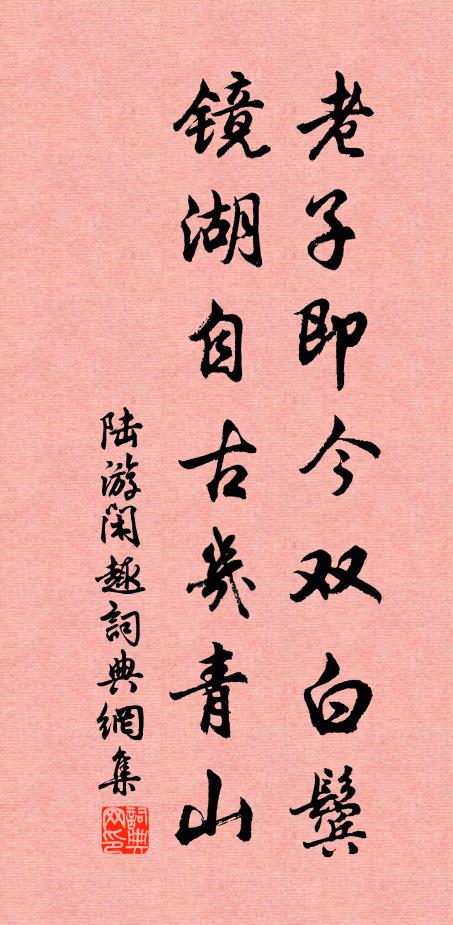 老子即今双白鬓
镜湖自古几青山
陆游闲趣詞典網集
詞典网印